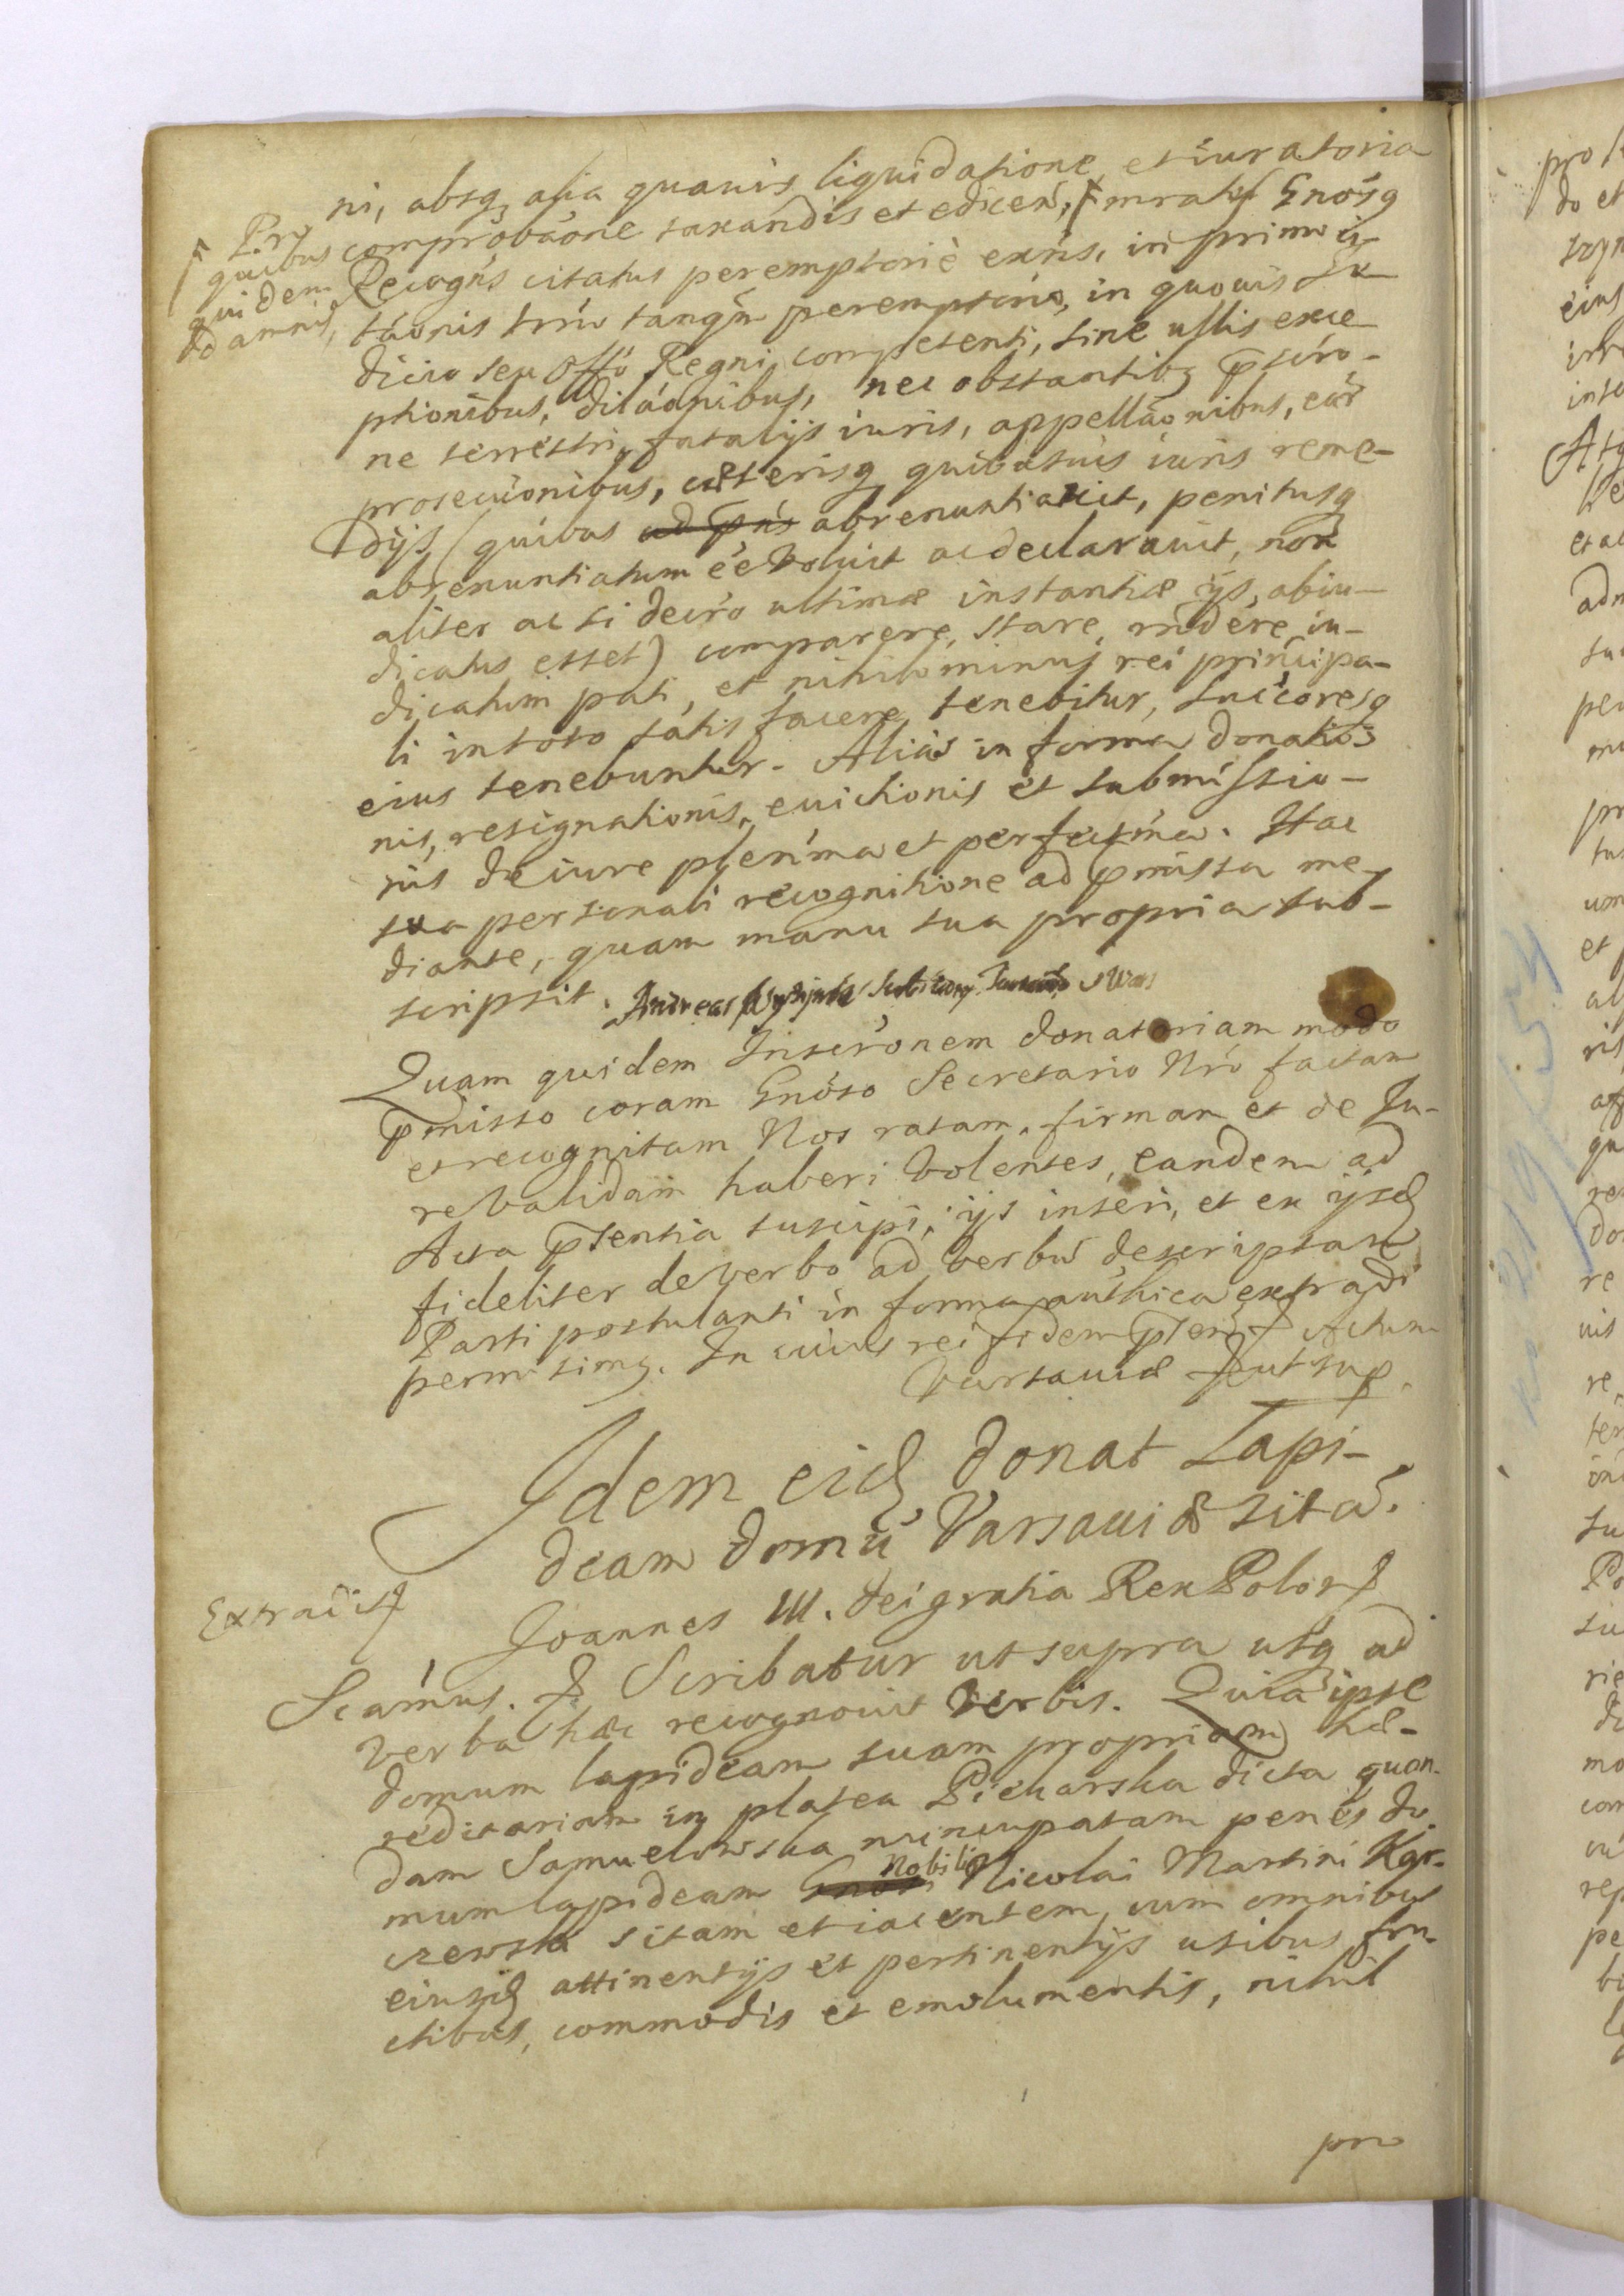 ni, absq₃ alia quavis liquidatione et iuratoria
Pro
quibus
quidem
damnis,
comprobaóne taxandis et edicen̄, mratus Gnósq
Recogńs citatus peremptoriè exńs, in primo ci-
táonis trḿo tanq̃m peremptorio, in quovis Iu-
dicio seu Offó Regni competenti, sine ullis exce
ptionibus, diláonibus, nec obstantibq₃ p̄scŕo-
ne terrestri, fatalijs iuris, appelláonibus, eār
prosecúonibus, cæterisq quibusuis iuris reme-
dijs (quibus ad p̄ńs abrenuntiavit, penitusq
abrenuntiatum éé voluit ac declarauit, non
aliter ac si decŕo ultimæ instantiæ ijs, abiu-
dicatus esset) comparere, stare, rńdere, iu-
dicatum pati, et nihilominus rei principa-
li in toto satis facere tenebitur, succóresq
eius tenebuntur. Aliàs in forma donatio-
nis, resignationis, evictionis et submissio-
nis de iure pleńma et perfectḿa. Hac
sua personali recognitione ad p̄missa me-
diante, quam manu sua propria sub-
scripsit. Andreas
Quam quidem Inscŕonem donatoriam modo
p̄misso coram Gnóso Secretario Nŕo factam
et recognitam Nos ratam, firmam et de Iu-
re validam haberi volentes, eandem ad
Acta p̄sentia suscipi, ijs inseri, et ex ijsd
fideliter de verbo ad verbū descriptam
Parti postulanti in forma auth́ica extradi
permisimq. In cuius rei fidem p̄sen̄ Actum
Varsaviæ ut sup.
Idem eid donat Lapi-
deam domū Varsaviæ sitā.
Extrad́it
Joannes III. Dei gratia Rex Polor
Scámus. Scribatur ut supra usq ad
verba hæc recognovit verbis. Quia ipse
domum lapideam suam propriam hæ-
reditariam in platea Piekarska dicta quon-
dam Samuelowska nuncupatam penes do-
mum lapideam Gnósi Nobilis Nicolai Martini Kgr-
czewski sitam et iacentem, cum omnibus
eiusd attinentijs et pertinentijs usibus fru-
ctibus, commodis et emolumentis, nihil
pro